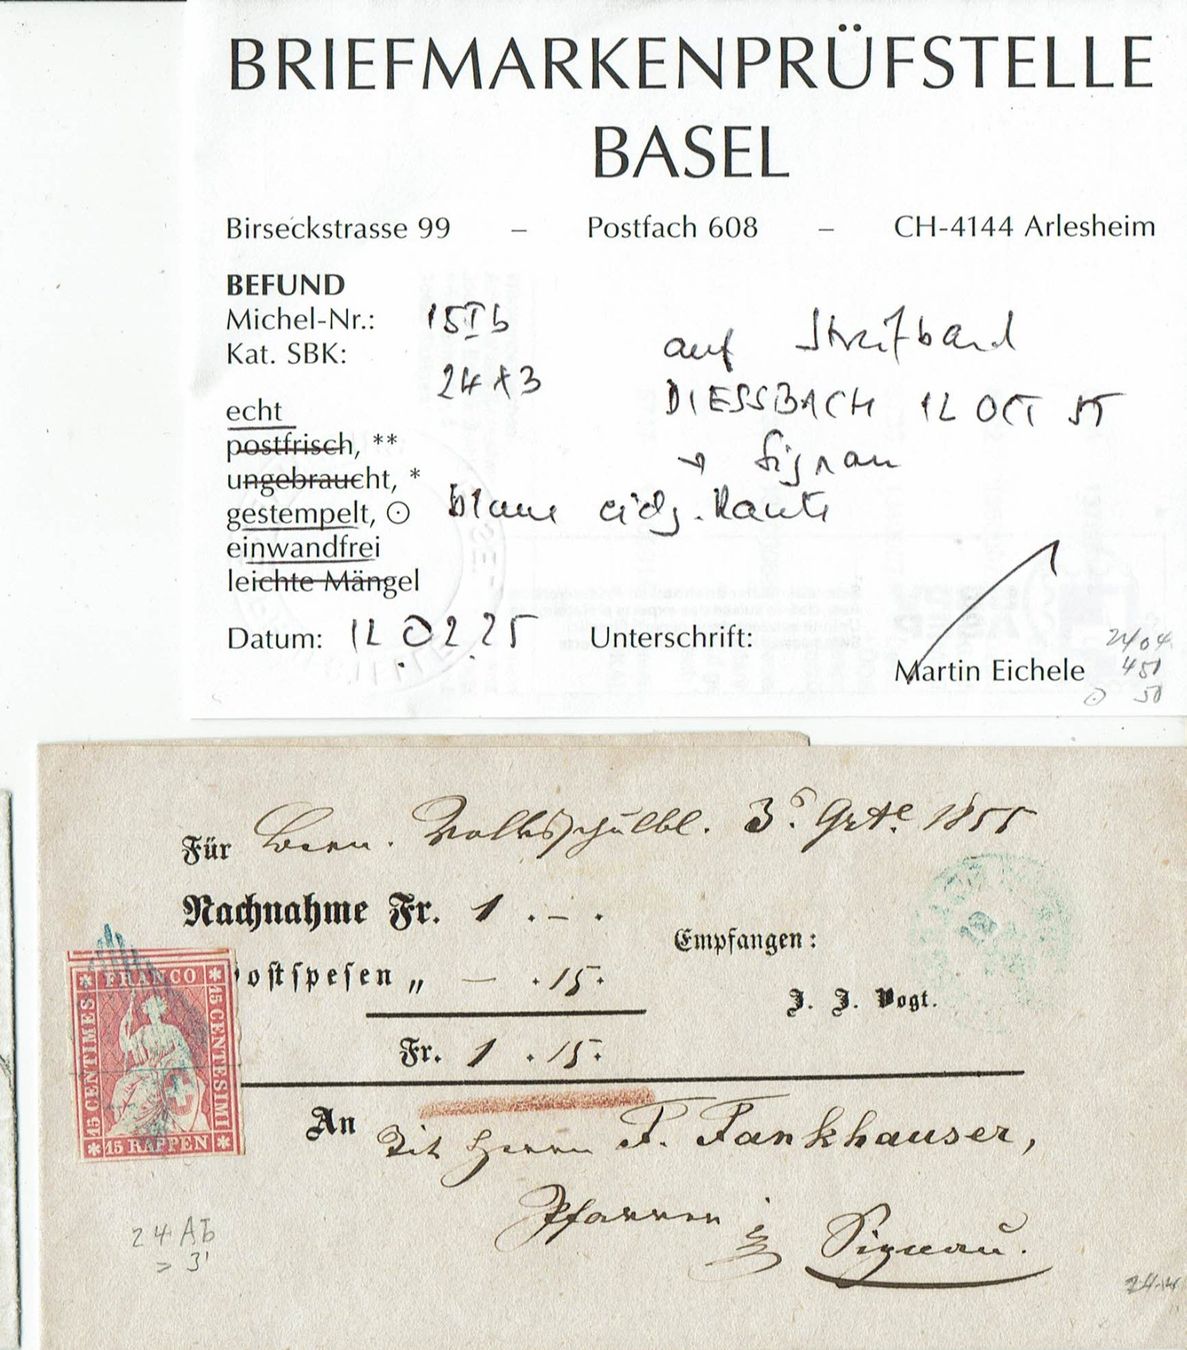 BRIEFMARKENPRÜFSTELLE
BASEL
Birseckstrasse 99 – Postfach 608 – CH-4144 Arlesheim
BEFUND
Michel-Nr.: 15 II b
Kat. SBK:
24
auf Streifband
DIESSBACH 12 OCT 55
→ Signau
echt
postfrisch, **
ungebraucht, *
gestempelt, ⊙ blaue eidg. Raute
einwandfrei
leichte Mängel
Datum: 12.02.25 Unterschrift:
Martin Eichele
450
⊙ 50
Für Bern. Volksschulbl. 3. 1855
Nachnahme Fr. 1 . – .
Postspesen „ — . 15.
Fr. 1 . 15.
Empfangen:
J. J. Vogt.
FRANCO
15 CENTIMES
15 CENTESIMI
15 RAPPEN
An
Tit Herrn F. Fankhauser,
Pfarrer in
Signau.
24 Ab
3'